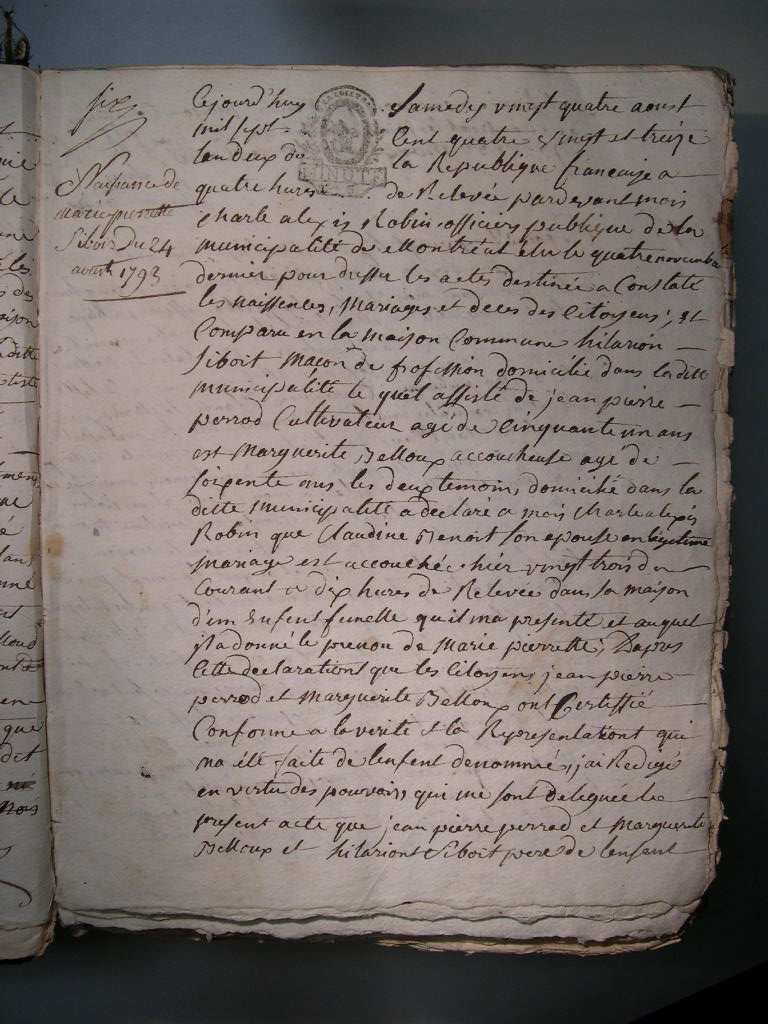 six
Naissance de
marie pierrette
Siboit Du 24
aoust 1793
Cejourd'huy Samedy vingt quatre aoust
mil sept Cent quatre vingt et treize
lan deux de la Republique francaise a
quatre hures de Relevée pardevant mois
Charle alexis Robin officiers publique de la
municipalité de Montréal élu le quatre novembre
dernier pour dresser les actes destinée a Constaté
les naissences, Mariages et deces des Citoyens; et
Comparu en la maison Commune hilarion
Siboit Maçon de profession domicilié dans la ditte
municipalité le quel assisté de jean pierre
perrod Cultivateur agé de Cinquante un ans
est Marguerite Belloux accoucheuse agé de
soixente ans les deux temoins domicilié dans la
ditte municipalité a declaré a mois Charle alexis
Robin que Claudine Benoit son epouse en légitime
mariage est accouchée hier vingt trois du
Courant a dix hures de Relevée dans sa maison
d'un Enfent funelle qu'il ma presenté et auquel
il a donné le prenon de Marie pierrette; Dapres
Cette declarations que les Citoyens jean pierre
perrod et Marguerite Belloux ont Certiffié
Conforme a la verité et la Representationt qui
ma été faite de lenfent denommé, jai Redigé
en vertu des pouvoirs qui me sont deleguée le
present acte que jean pierre perrod et Marguerite
Belloux et hilariont Siboit pere de lenfent